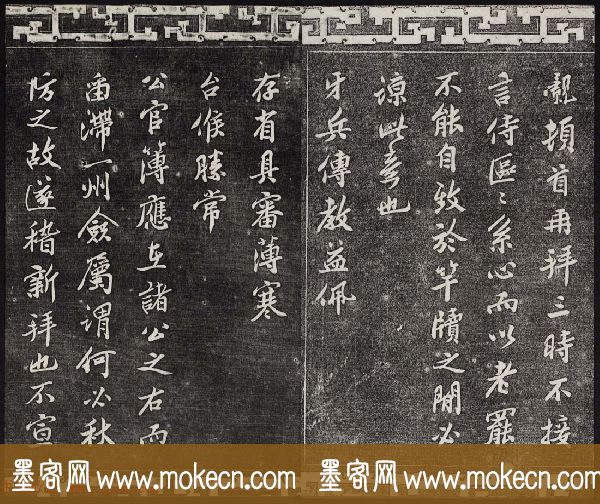 覿頓首再拜三時不接
言侍區〻系心而以老罷
不能自致於竿牘之間必
諒此意也
牙兵傳教益佩
存有具審薄寒
台候勝常
公官簿應在諸公之右而
畱滯一州僉屬謂何必秋
防之故遂稽新拜也不宣
墨客网 www.mokecn.com 墨客网 www.mokecn.com